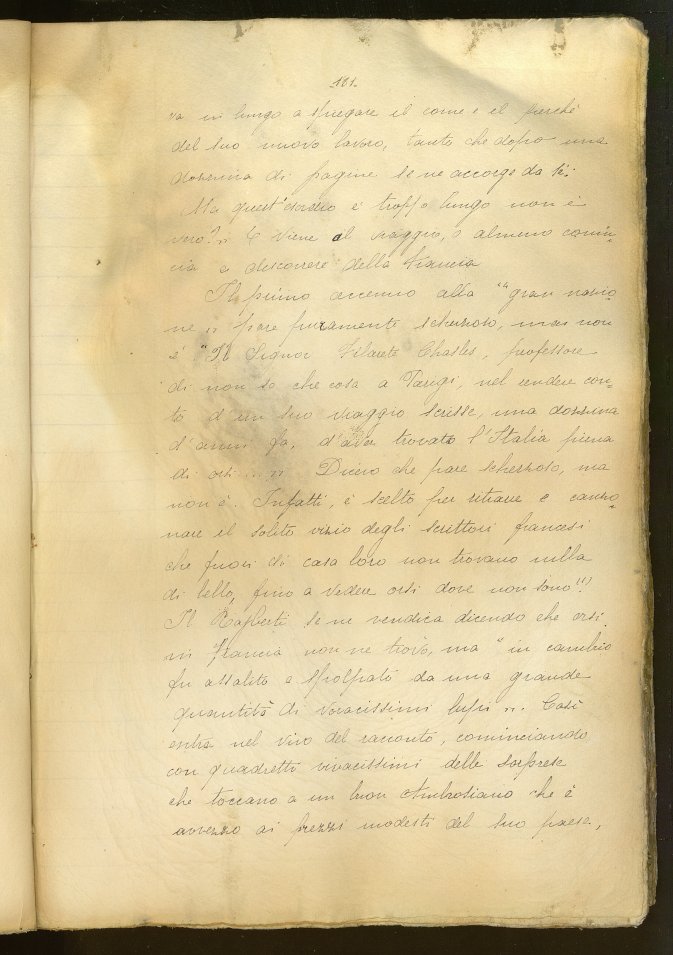 181.
va in lungo a spiegare il come e il perchè
del suo nuovo lavoro, tanto che dopo una
dozzina di pagine se ne accorge da sè:
Ma quest'esordio è troppo lungo non è
vero? „ E viene al viaggio, o almeno comin-
cia a discorrere della Francia
Il primo accenno alla "gran nazio-
ne „ pare puramente scherzoso, ma non
è "Il Signor Filarete Chasles, professore
di non so che cosa a Parigi, nel rendere con-
to d'un suo viaggio scrisse, una dozzina
d'anni fa, d'aver trovato l'Italia piena
di orsi .... „ Dicevo che pare scherzoso, ma
non è. Infatti, è scelto per ritrarre e canzo-
nare il solito vizio degli scrittori francesi
che fuori di casa loro non trovano nulla
di bello, fino a vedere orsi dove non sono"!
Il Raiberti se ne vendica dicendo che orsi
in Francia non ne trovò, ma "in cambio
fu assalito e spolpato da una grande
quantità di voracissimi lupi „. Così
entra nel vivo del racconto, cominciando
con quadretti vivacissimi delle sorprese
che toccano a un buon Ambrosiano che è
avvezzo ai prezzi modesti del suo paese,